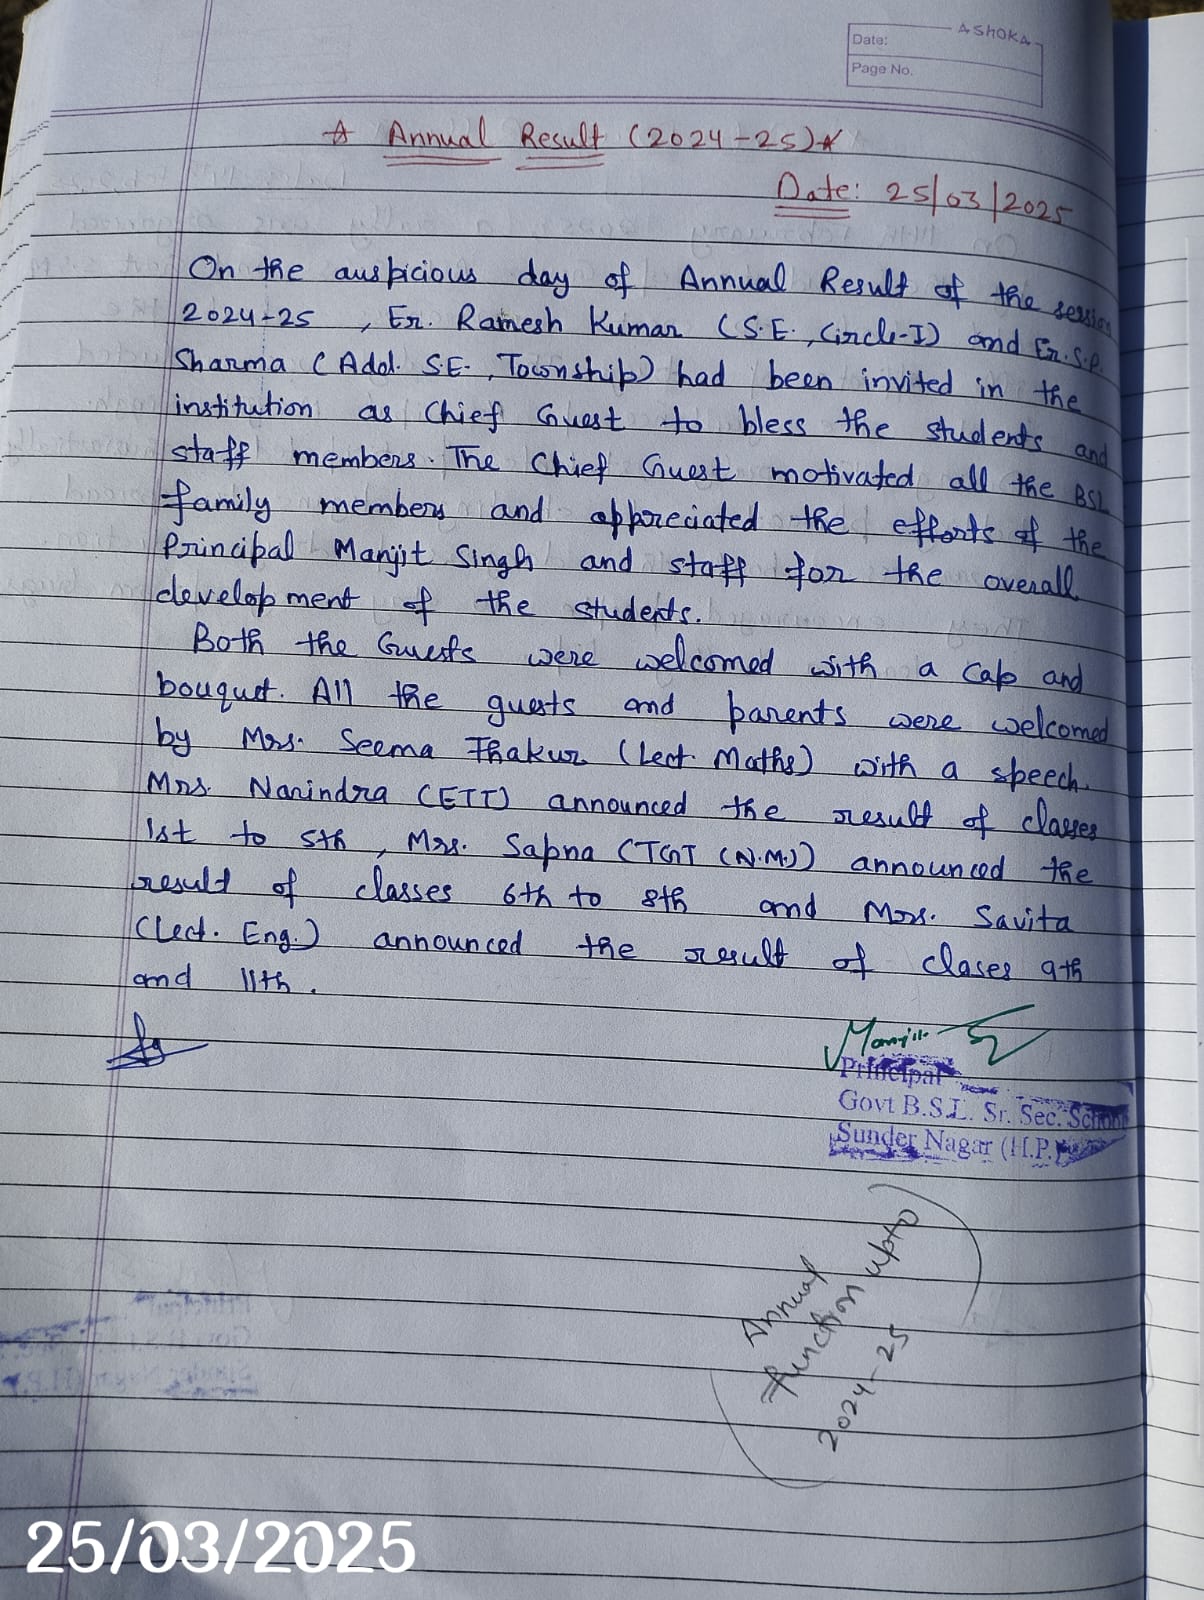 ASHOKA
Date:
Page No.
☆ Annual Result (2024-25)☆
Date: 25/03/2025
On the auspicious day of Annual Result of the session
2024-25 , Er. Ramesh Kumar (S.E., Circle-I) and Er. S.P.
Sharma (Addl. S.E., Township) had been invited in the
institution as Chief Guest to bless the students and
staff members. The Chief Guest motivated all the BSL
family members and appreciated the efforts of the
Principal Manjit Singh and staff for the overall
development of the students.
Both the Guests were welcomed with a cap and
bouquet. All the guests and parents were welcomed
by Mrs. Seema Thakur (Lect. Maths) with a speech.
Mrs. Narindra (ETT) announced the result of classes
1st to 5th, Mrs. Sapna (TGT (N.M.)) announced the
result of classes 6th to 8th and Mrs. Savita
(Lect. Eng.) announced the result of clases 9th
and 11th.
Manjit
Principal
Govt B.S.L. Sr. Sec. School
Sunder Nagar (H.P.)
Annual
function upto
2024-25
25/03/2025